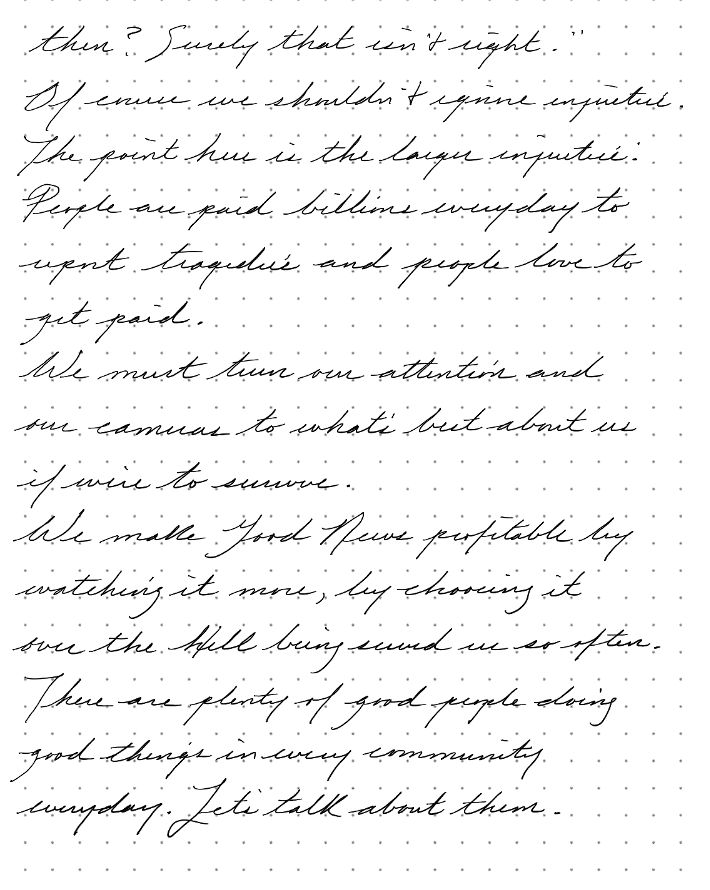 then? Surely that isn't right."
Of course we shouldn't ignore injustice.
The point here is the larger injustice:
People are paid billions everyday to
report tragedies and people love to
get paid.
We must turn our attention and
our cameras to what's best about us
if we're to survive.
We make Good News profitable by
watching it more, by choosing it
over the Hell being served us so often.
There are plenty of good people doing
good things in every community
everyday. Let's talk about them.